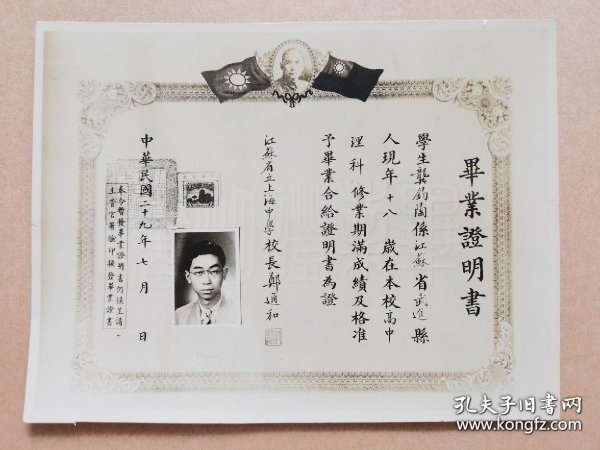 畢業證明書
學生龔鈞陶係江蘇省武進縣
人現年十八歲在本校高中
理科修業期滿成績及格准
予畢業合給證明書為證
江蘇省立上海中學校長鄭通和
中華民國二十九年七月　日
奉令暫發畢業證明書仍俟呈請
主管官署驗印換發畢業證書
孔夫子旧书网
www.kongfz.com